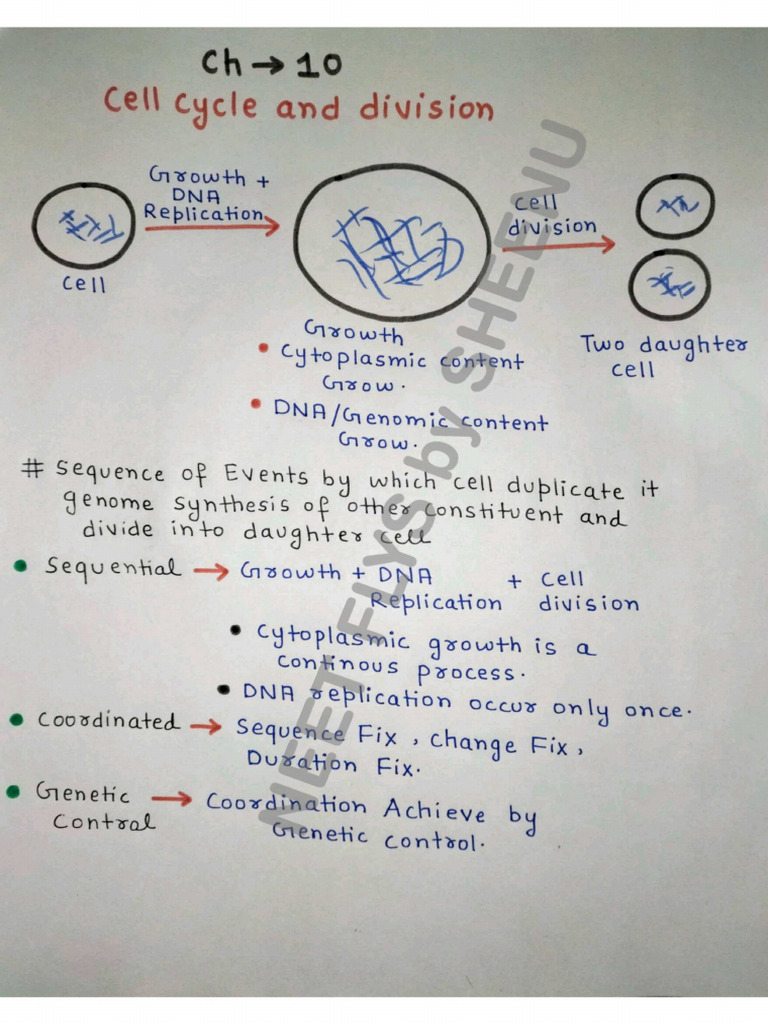 Ch → 10
Cell Cycle and division
Growth +
DNA
Replication
Cell
division
Cell
Growth
• Cytoplasmic content
Grow.
• DNA/Genomic content
Grow.
Two daughter
cell
# Sequence of Events by which cell duplicate it
genome synthesis of other constituent and
divide into daughter cell
• Sequential → Growth + DNA + Cell
Replication division
• Cytoplasmic growth is a
continous process.
• DNA replication occur only once.
• Coordinated → Sequence Fix, change Fix,
Duration Fix.
• Genetic → Coordination Achieve by
Contral Genetic control.
NEET FLYS by SHEENU